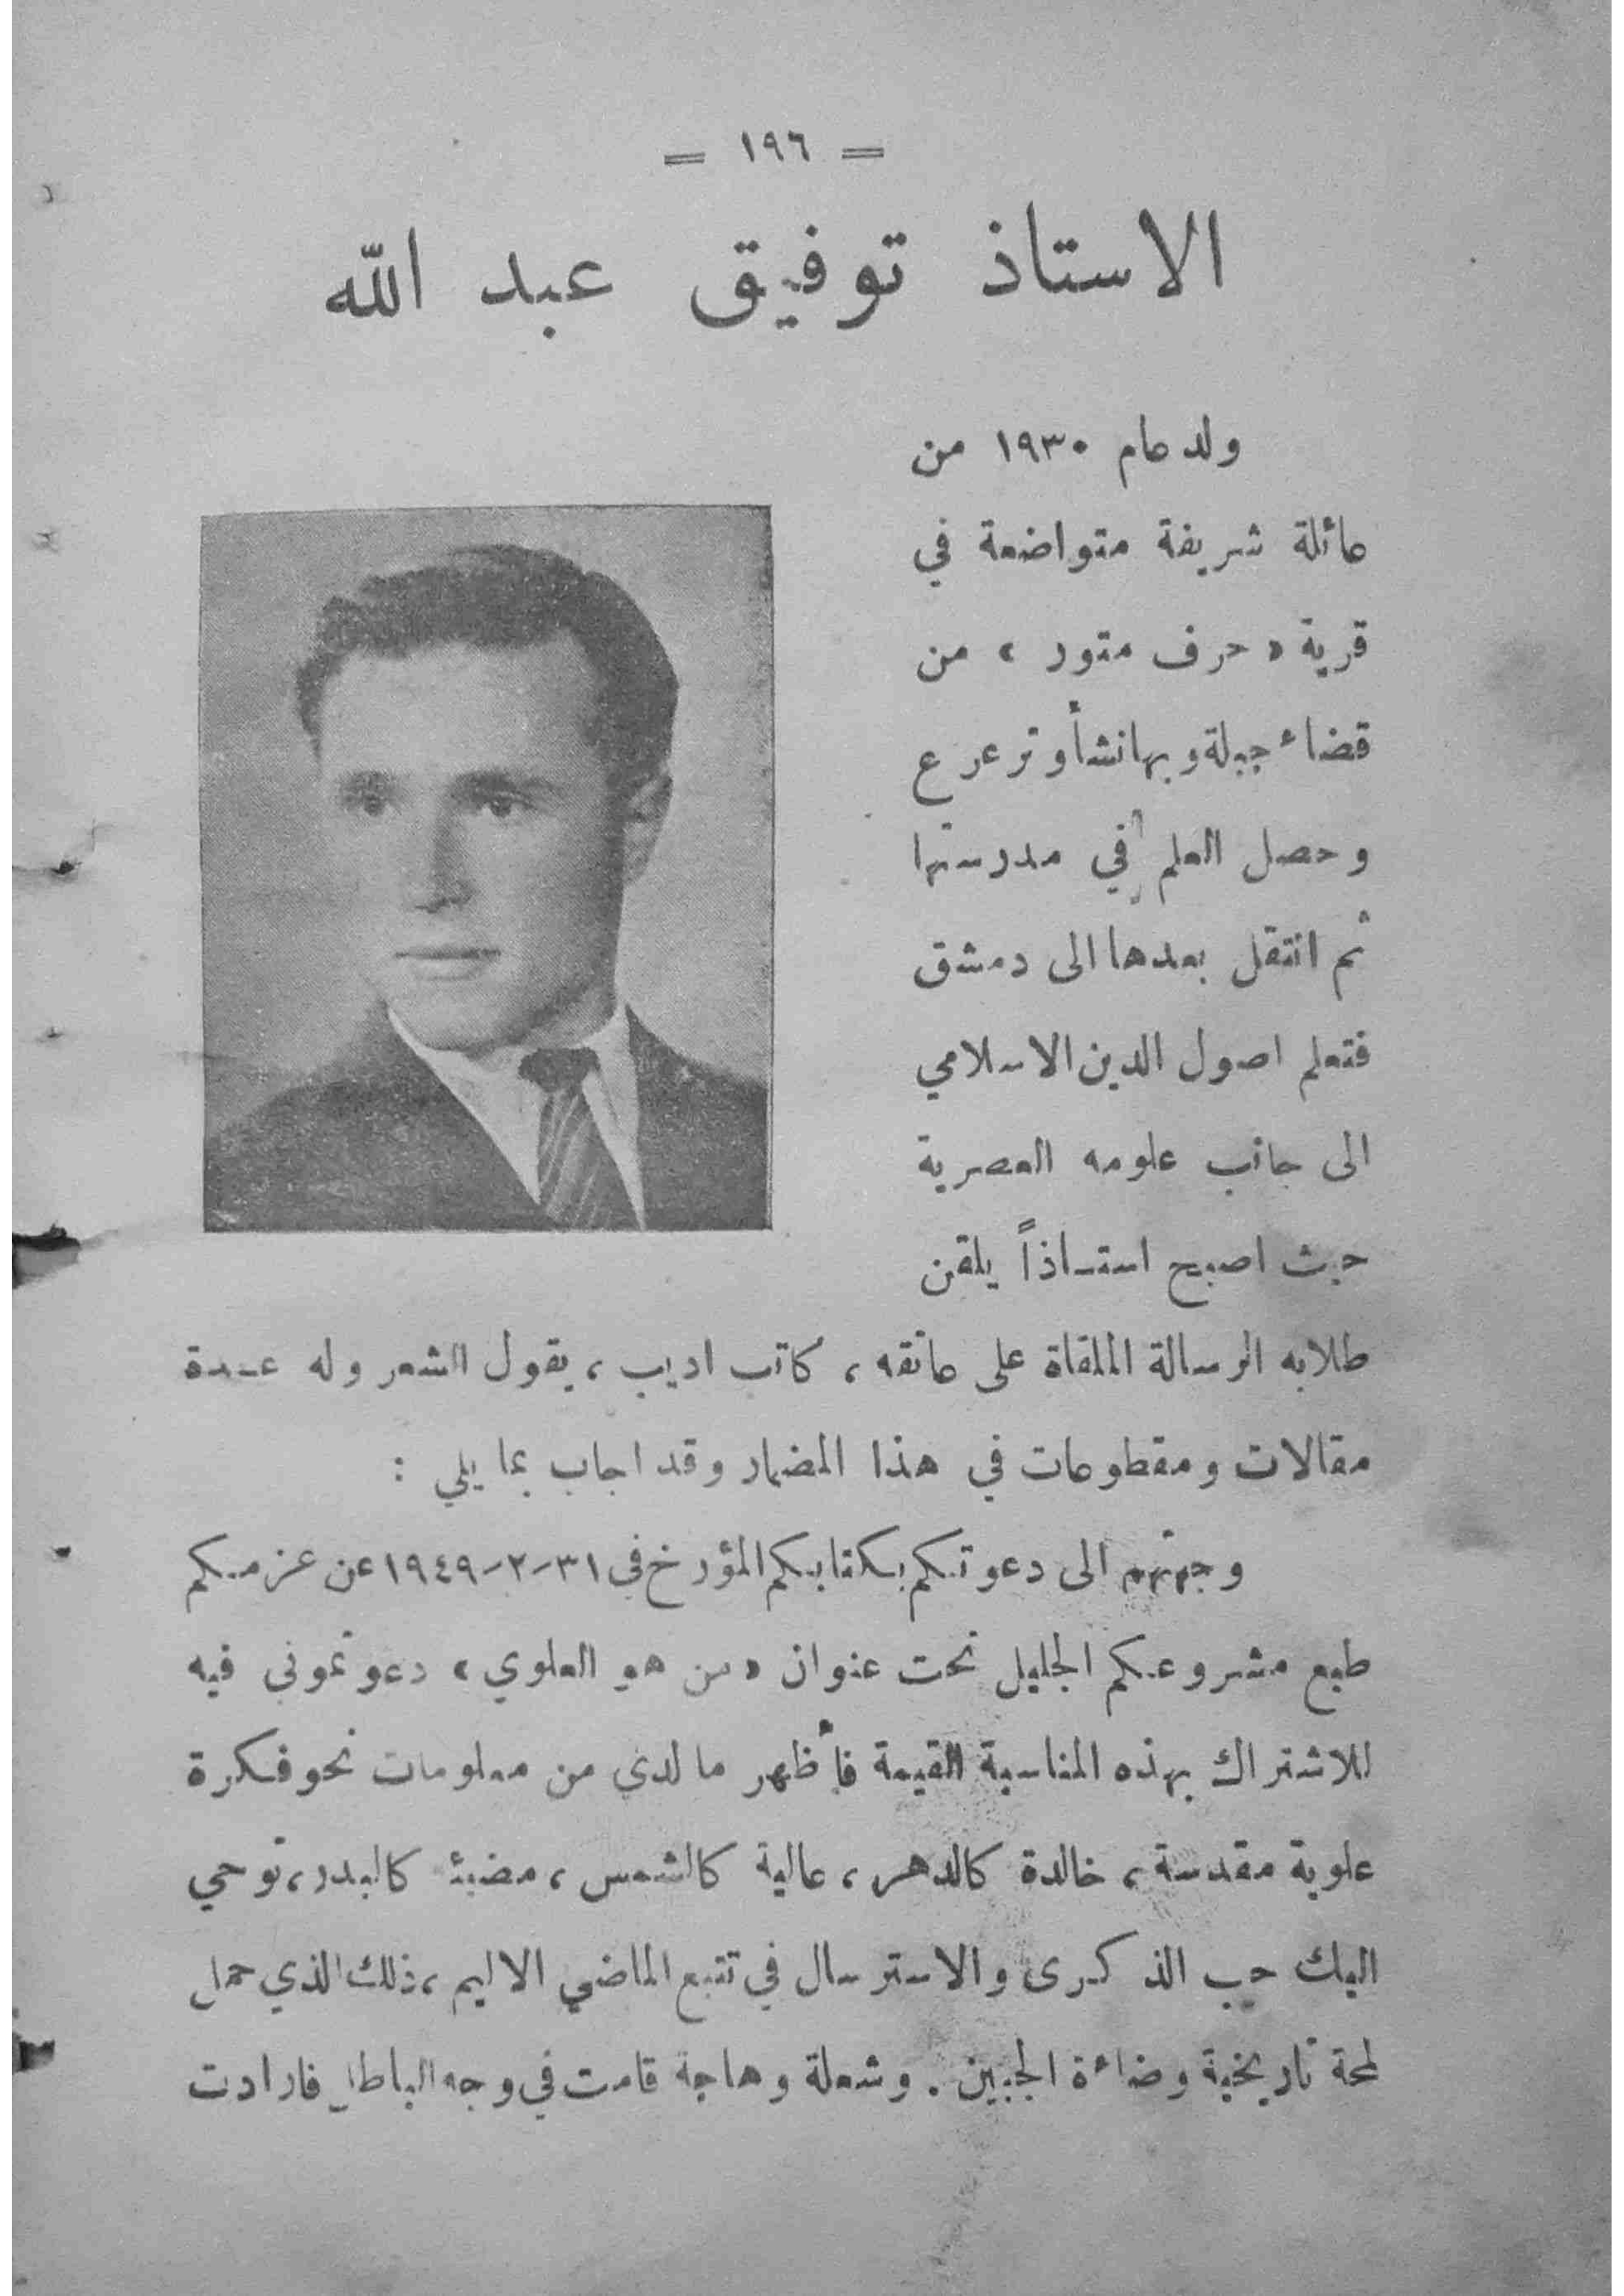 = ١٩٦ =
الاستاذ توفيق عبد الله
ولد عام ١٩٣٠ من
عائلة شريفة متواضعة في
قرية « حرف متور » من
قضاء جبلة وبها نشأ وترعرع
وحصل العلم في مدرستها
ثم انتقل بعدها الى دمشق
فتعلم اصول الدين الاسلامي
الى جانب علومه العصرية
حيث اصبح استاذاً يلقن
طلابه الرسالة الملقاة على عاتقه ، كاتب اديب ، يقول الشعر وله عدة
مقالات ومقطوعات في هذا المضمار وقد اجاب بما يلي :
وجهتم الى دعوتكم بكتابكم المؤرخ في ٣١-٢-١٩٤٩ عن عزمكم
طبع مشروعكم الجليل تحت عنوان « من هو العلوي » دعوتموني فيه
للاشتراك بهذه المناسبة القيمة فأظهر ما لدي من معلومات نحو فكرة
علوية مقدسة ، خالدة كالدهر ، عالية كالشمس ، مضيئة كالبدر ، توحي
اليك حب الذكرى والاسترسال في تتبع الماضي الاليم ، ذلك الذي حمل
لمحة تاريخية وضاءة الجبين . وشعلة وهاجة قامت في وجه الباطل فارادت